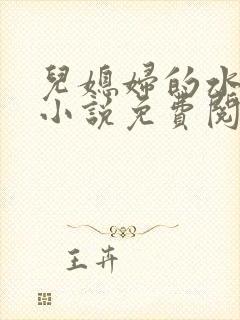 兒媳婦的水
小說免費閱
王卉